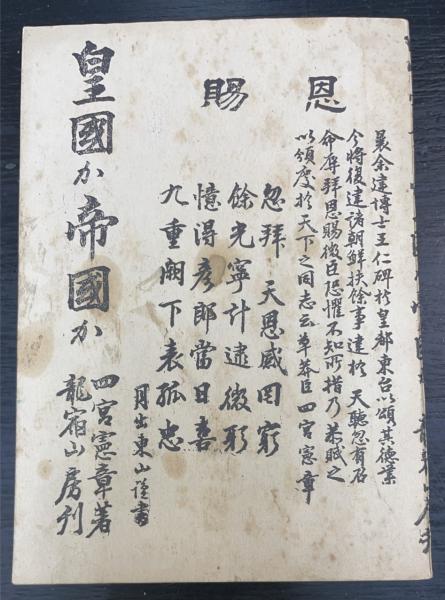 恩賜
曩余建博士王仁碑於皇都東台以頌其德業
今將復建諸朝鮮扶餘事達於 天聽忽有召
命辱拜恩賜微臣恐懼不知所措乃恭賦之
以頒度於天下之同志云草莽臣 四宮憲章
忽拜 天恩感罔窮
餘光寧計逮微躬
憶得彥郎當日喜
九重闕下表孤忠
月出東山謹書
皇國か帝國か
四宮憲章著
龍宿山房刊